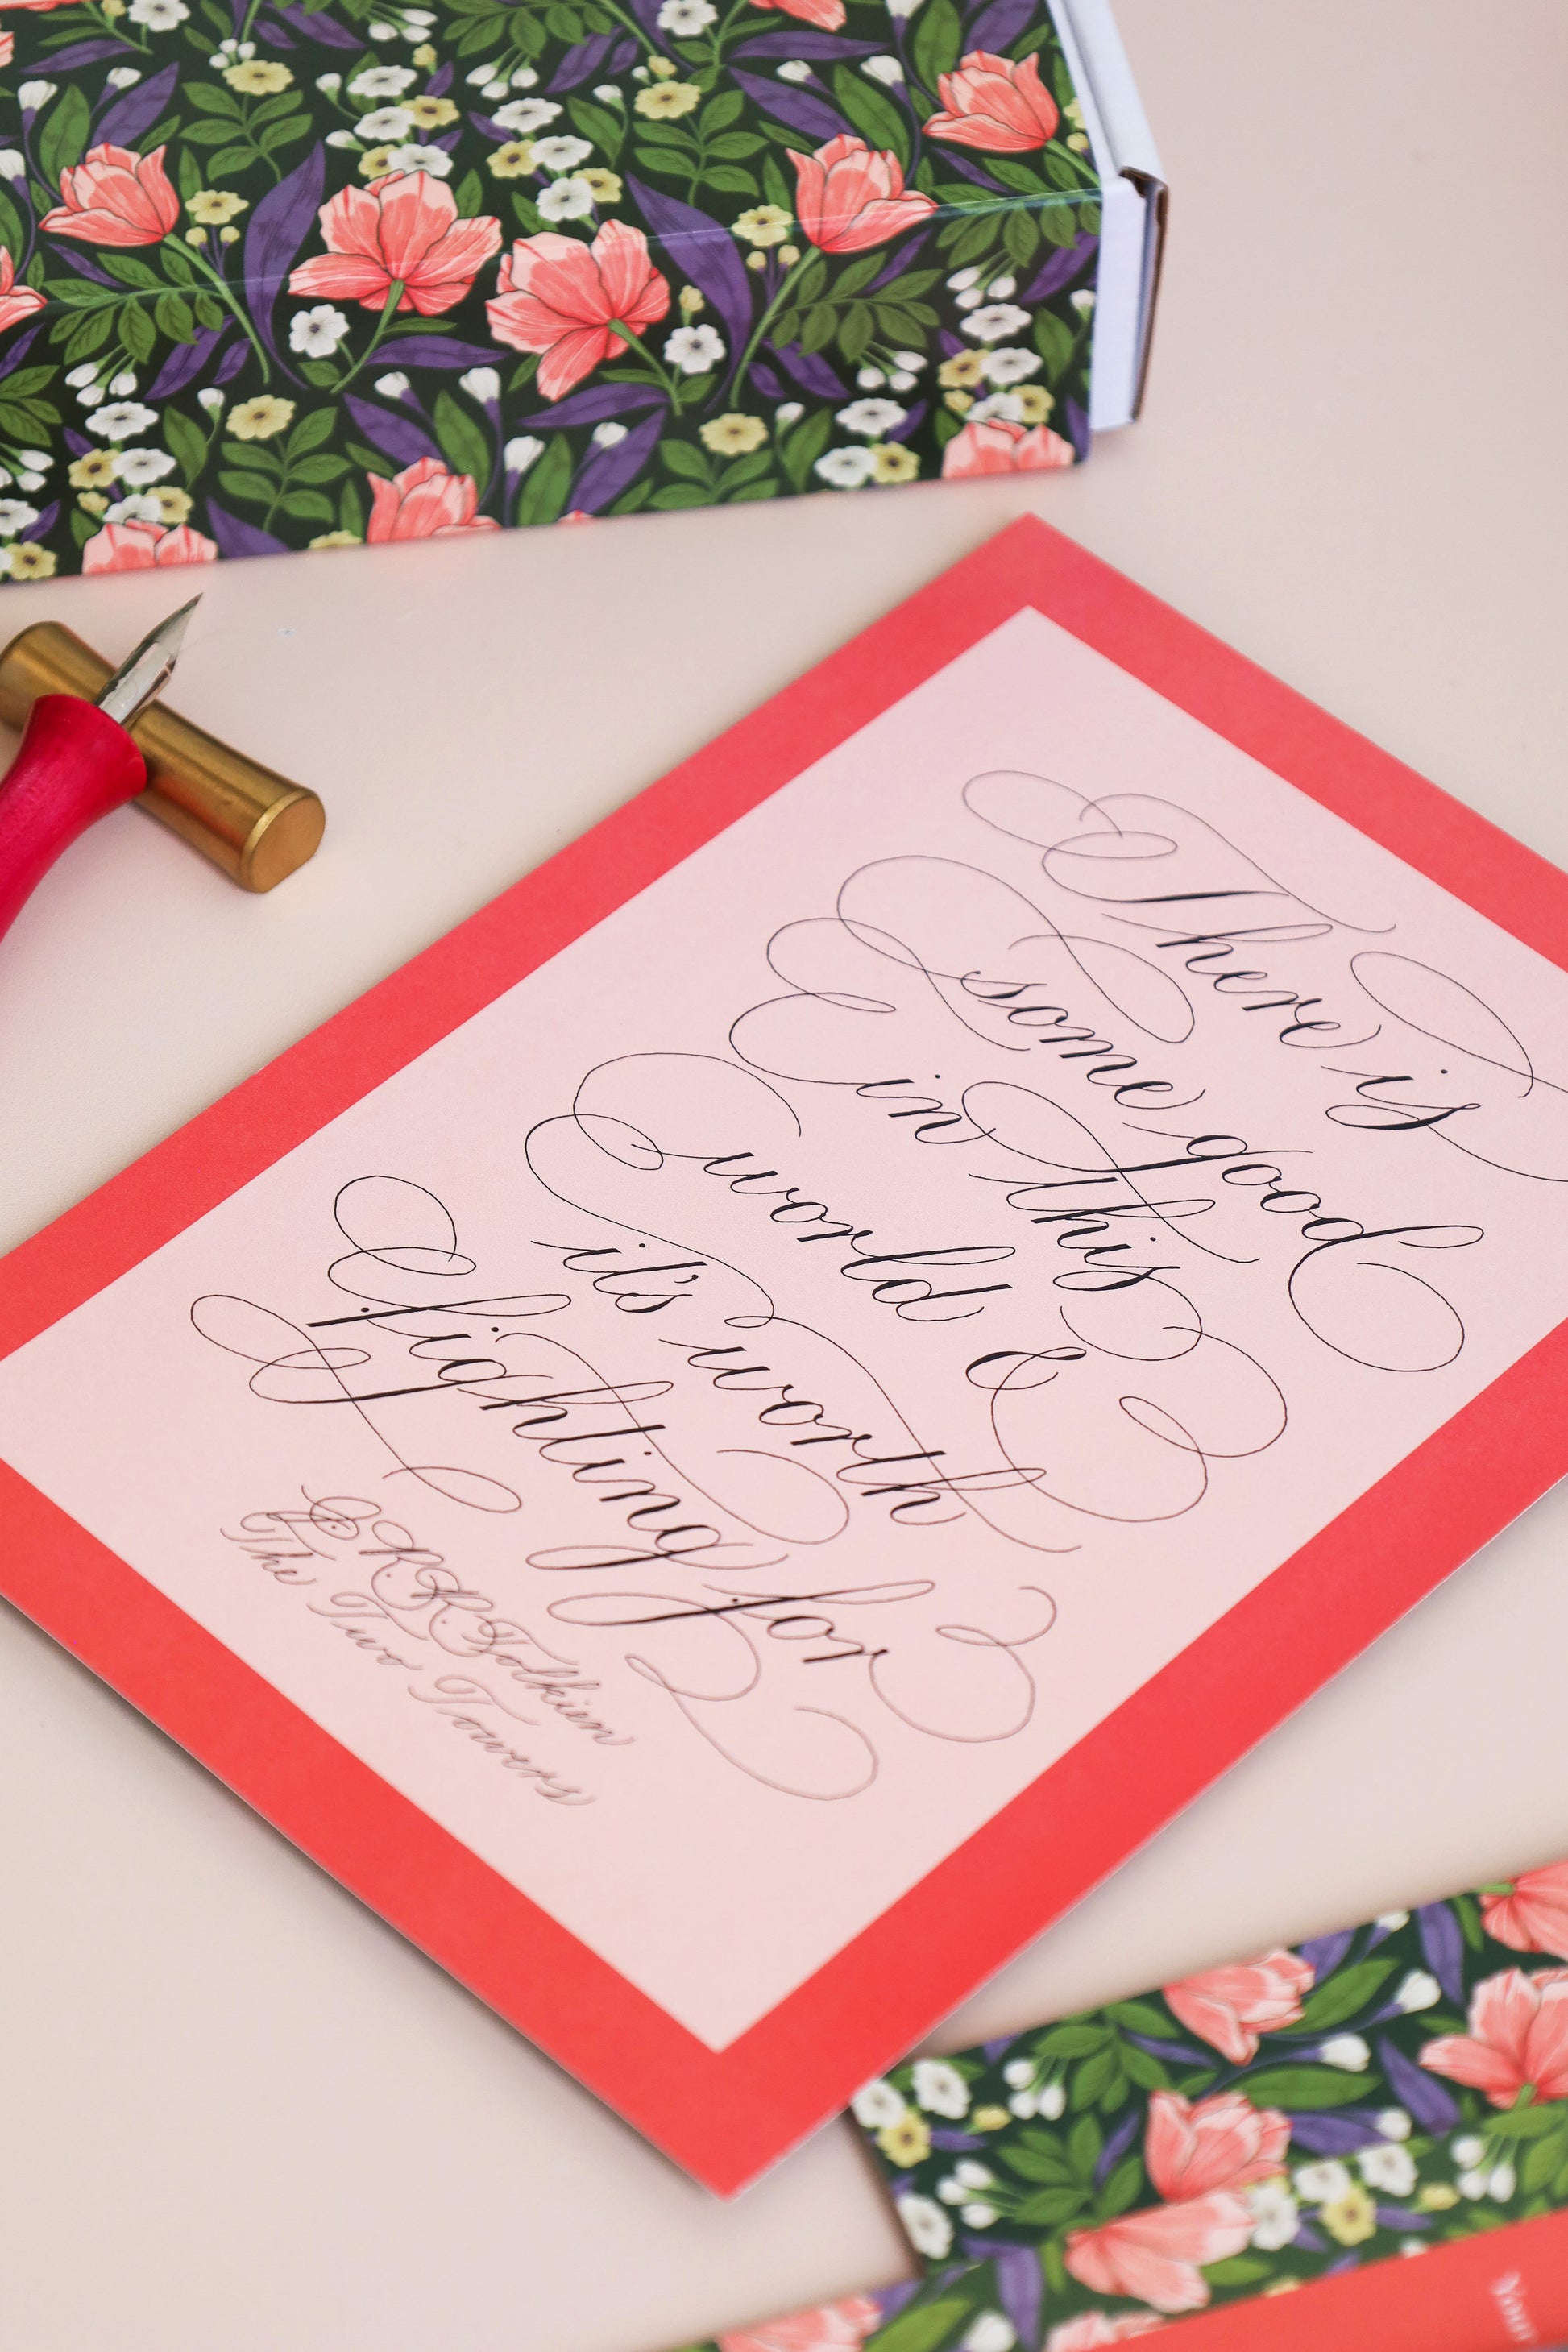 There is
some good
in this
world &
it's worth
fighting for
J.R.R. Tolkien
The Two Towers
Your